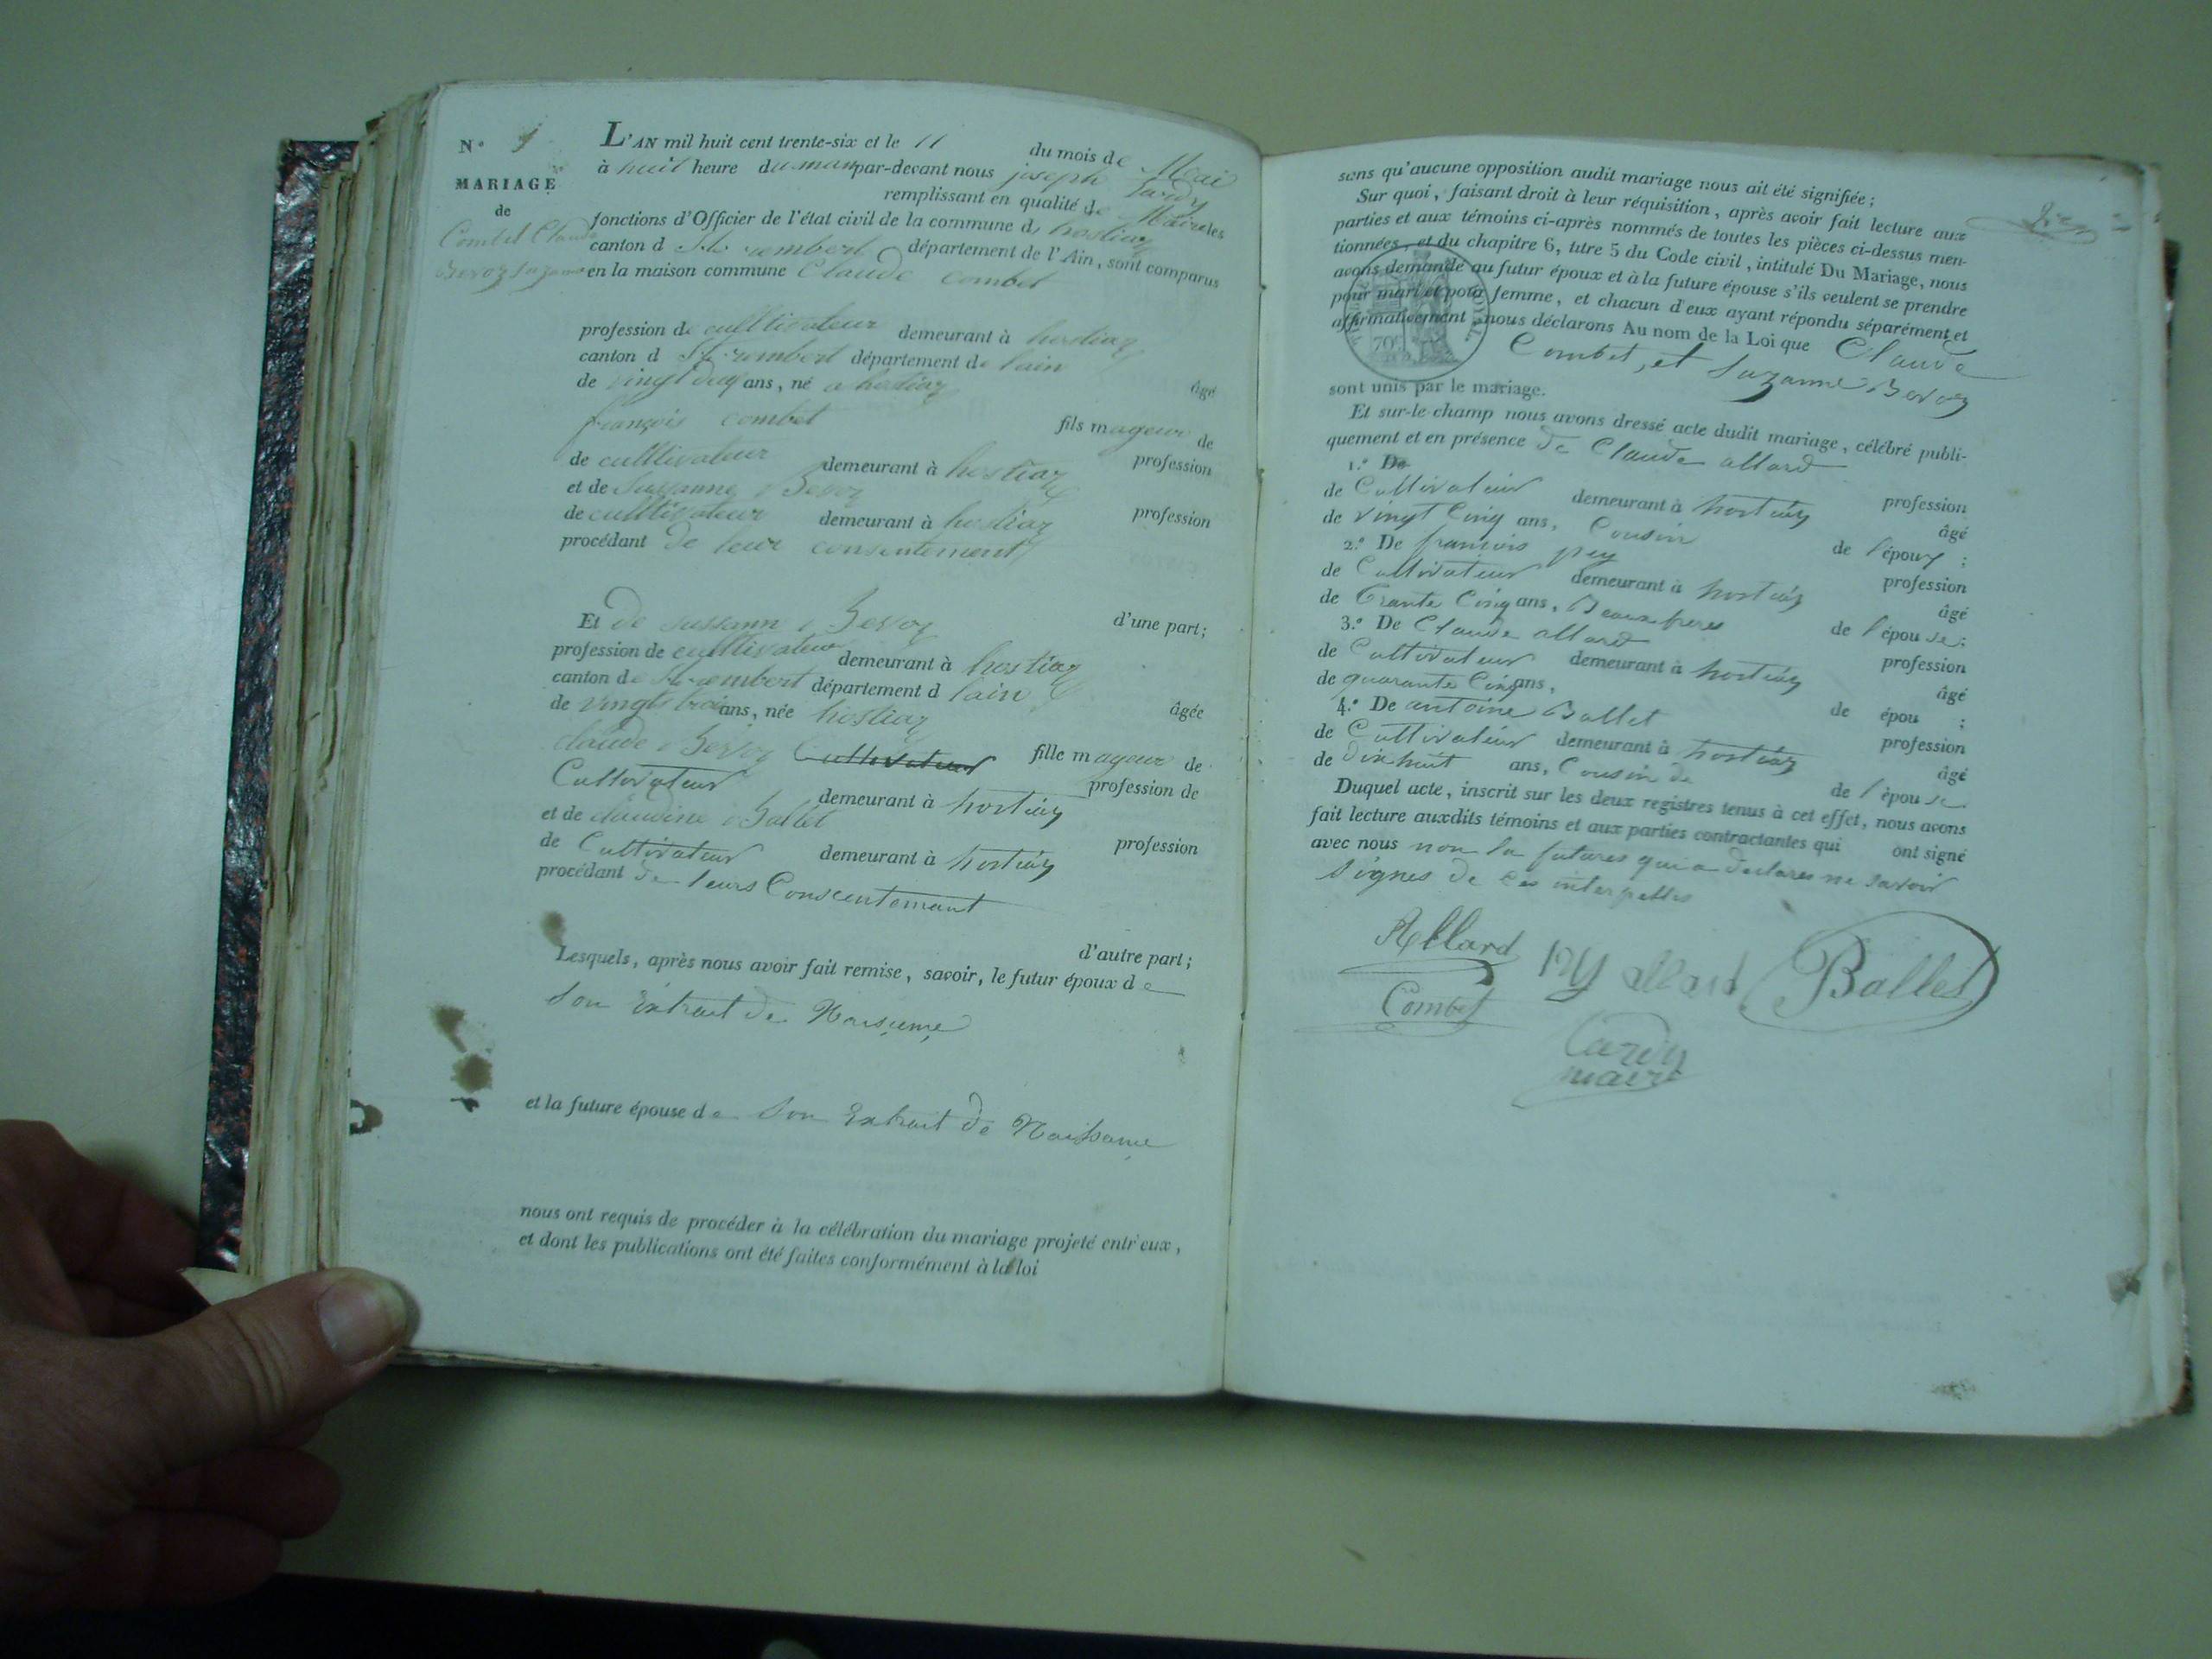 N.o
MARIAGE
de
Combet Claude
Bevoz Suzanne
L'AN mil huit cent trente-six et le 11 du mois de Mai
à huit heure du matin par-devant nous joseph Tardy
remplissant en qualité de Maire les
fonctions d'Officier de l'état civil de la commune d hostiaz
canton d St rembert département de l'Ain, sont comparus
en la maison commune Claude combet
profession de cultivateur demeurant à hostiaz
canton d St rembert département de lain
âgé
de vingt deux ans, né a hostiaz
fils mageur de
françois combet
profession
de cultivateur demeurant à hostiaz
et de Suzanne Bevoz
profession
de cultivateur demeurant à hostiaz
procédant de leur consentement
d'une part;
Et de Bevoz
profession de cultivateur demeurant à hostiaz
canton de St rembert département d lain
âgée
de vingt trois ans, née hostiaz
fille mageur de
claude Bevoz Cultivateur
profession de
Cultivateur demeurant à hostiaz
et de claudine Ballet
profession
de Cultivateur demeurant à hostiaz
procédant de leurs Consentemant
d'autre part;
Lesquels, après nous avoir fait remise, savoir, le futur époux de
Son Extrait de
et la future épouse de Son Extrait de Naissance
nous ont requis de procéder à la célébration du mariage projeté entr'eux,
et dont les publications ont été faites conformément à la loi
sans qu'aucune opposition audit mariage nous ait été signifiée;
Sur quoi, faisant droit à leur réquisition, après avoir fait lecture aux
parties et aux témoins ci-après nommés de toutes les pièces ci-dessus men-
tionnées, et du chapitre 6, titre 5 du Code civil, intitulé Du Mariage, nous
avons demandé au futur époux et à la future épouse s'ils veulent se prendre
pour mari et pour femme, et chacun d'eux ayant répondu séparément et
affirmativement, nous déclarons Au nom de la Loi que Claude
Combet, et Suzanne Bevoz
sont unis par le mariage.
Et sur-le-champ nous avons dressé acte dudit mariage, célébré publi-
quement et en présence de Claude allard
1.º De
profession
de Cultivateur demeurant à hostiaz
âgé
de vingt Cinq ans, Cousin de l'époux;
2.º De françois pey
profession
de Cultivateur demeurant à hostiaz
âgé
de Trante Cinq ans, Beaux freres de l'épouse;
3.º De Claude allard
profession
de Cultivateur demeurant à hostiaz
âgé
de quarante Cinq ans, de épou ;
4.º De antoine Ballet
profession
de Cultivateur demeurant à hostiaz
âgé
de Dixhuit ans, Cousin de de l'épouse
Duquel acte, inscrit sur les deux registres tenus à cet effet, nous avons
fait lecture auxdits témoins et aux parties contractantes qui ont signé
avec nous non la futures qui a declares ne savoir
Signes de ces interpelles
Allard pey allard Ballet
Combet
Tardy
maire